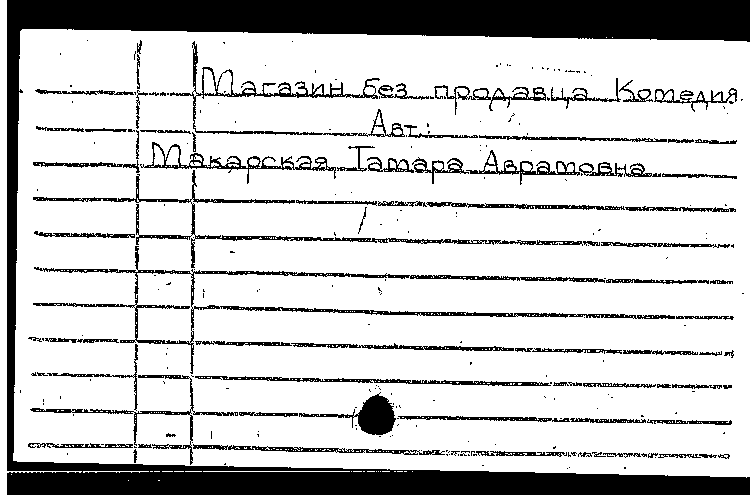 Магазин без продавца Комедия.
Авт.:
Макарская Тамара Аврамовна